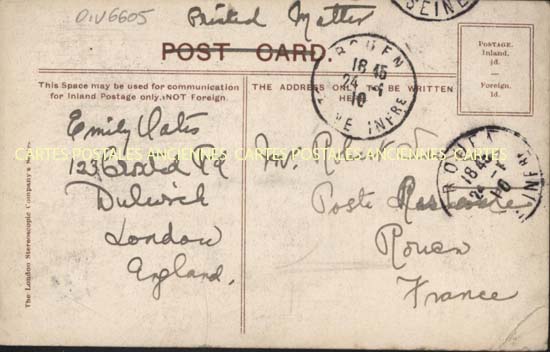 DIV6605
Printed Matter
SEINE
POST CARD.
ROUEN
18 45
24
10
INFRE
POSTAGE.
Inland.
½d.
Foreign.
1d.
This Space may be used for communication
for Inland Postage only, NOT Foreign.
THE ADDRESS ONLY TO BE WRITTEN
HERE
Emily Oates
123 Rd
Dulwich
London
England.
CARTES POSTALES ANCIENNES CARTES POSTALES ANCIENNES CARTES
Mr. Robert
Poste Restante
Rouen
France
ROUEN
18 45
24
10
The London Stereoscopic Company's Series.